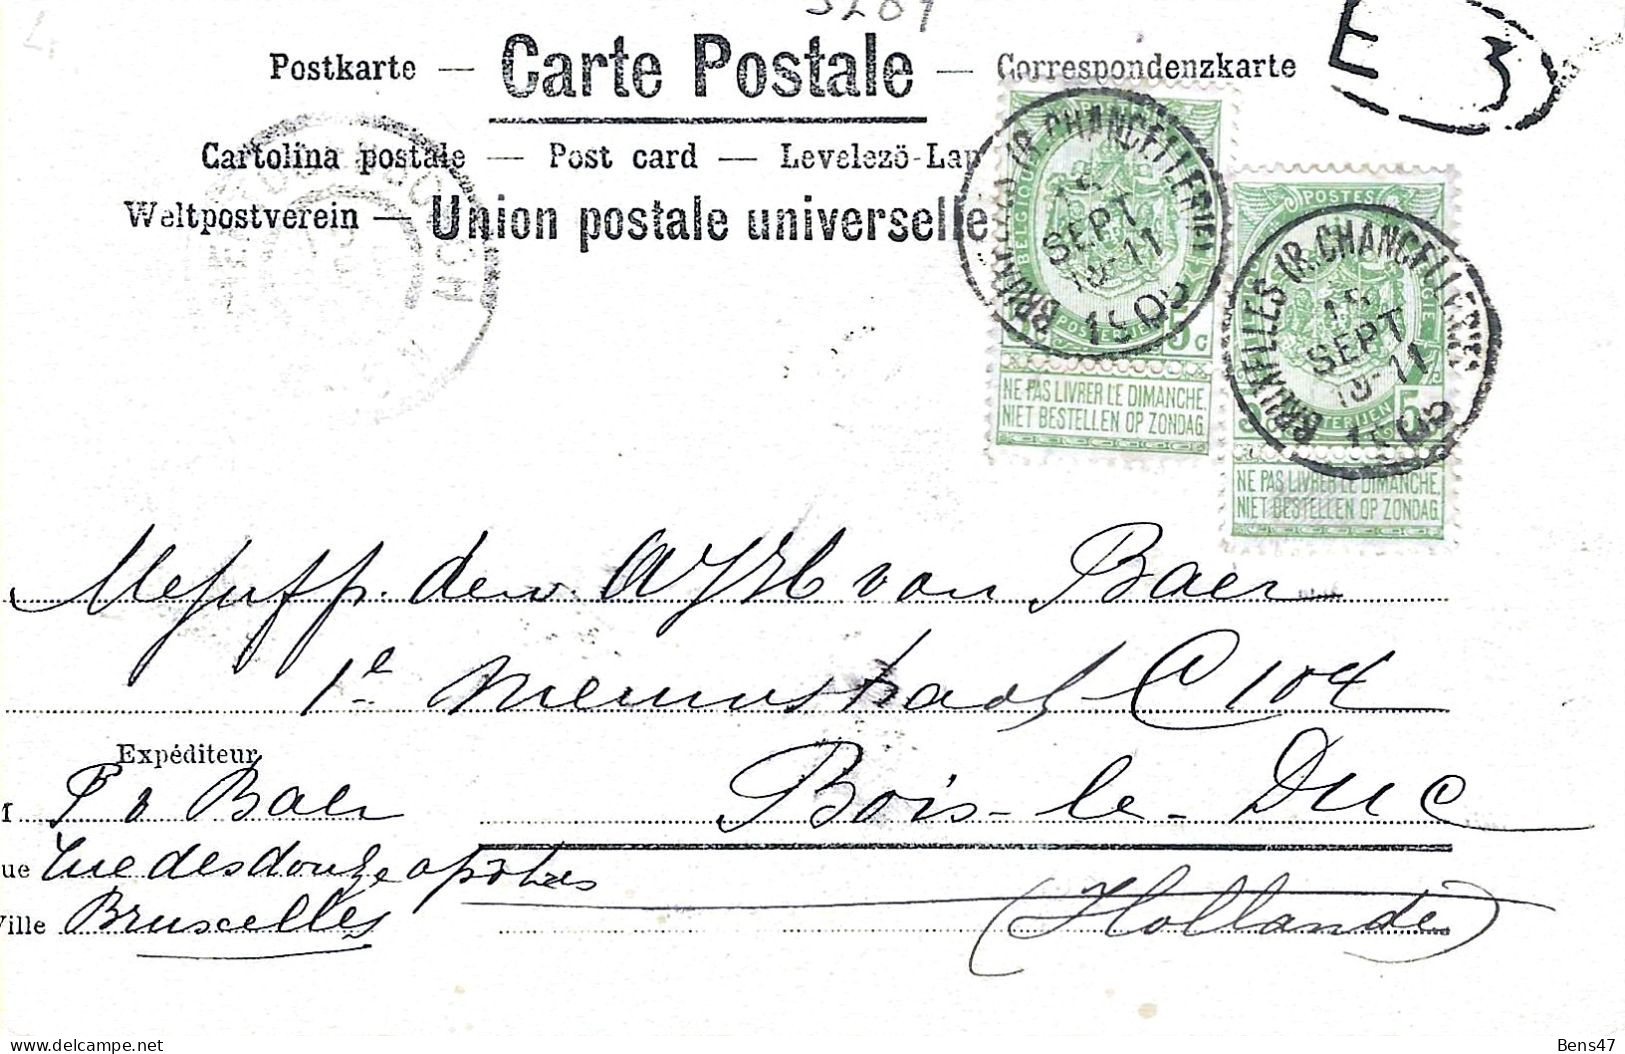 3289
Postkarte — Carte Postale — Correspondenzkarte
E 3
Cartolina postale — Post card — Levelező-Lap
Weltpostverein — Union postale universelle
BRUXELLES (R. CHANCELLERIE)
15
SEPT
10-11
1905
POSTES
BELGIQUE
POSTERIJEN
5 c
NE PAS LIVRER LE DIMANCHE.
NIET BESTELLEN OP ZONDAG.
BRUXELLES (R. CHANCELLERIE)
15
SEPT
10-11
1905
POSTES
5
NE PAS LIVRER LE DIMANCHE.
NIET BESTELLEN OP ZONDAG.
Mejuffr. den. van Baer
1e Nieuwstraat C 104
Expéditeur
P v Baer
Bois-le-Duc
ue rue des douze apôtres
Ville Bruxcelles
(Hollande)
Bens47